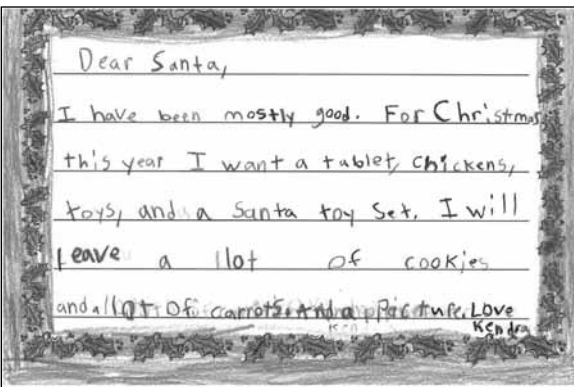 Dear Santa,
I have been mostly good. For Christmas
this year I want a tablet, chickens,
toys, and a Santa toy set. I will
Leave a llot of cookies
and a llot of carrots. And a picture. Love
Kendra